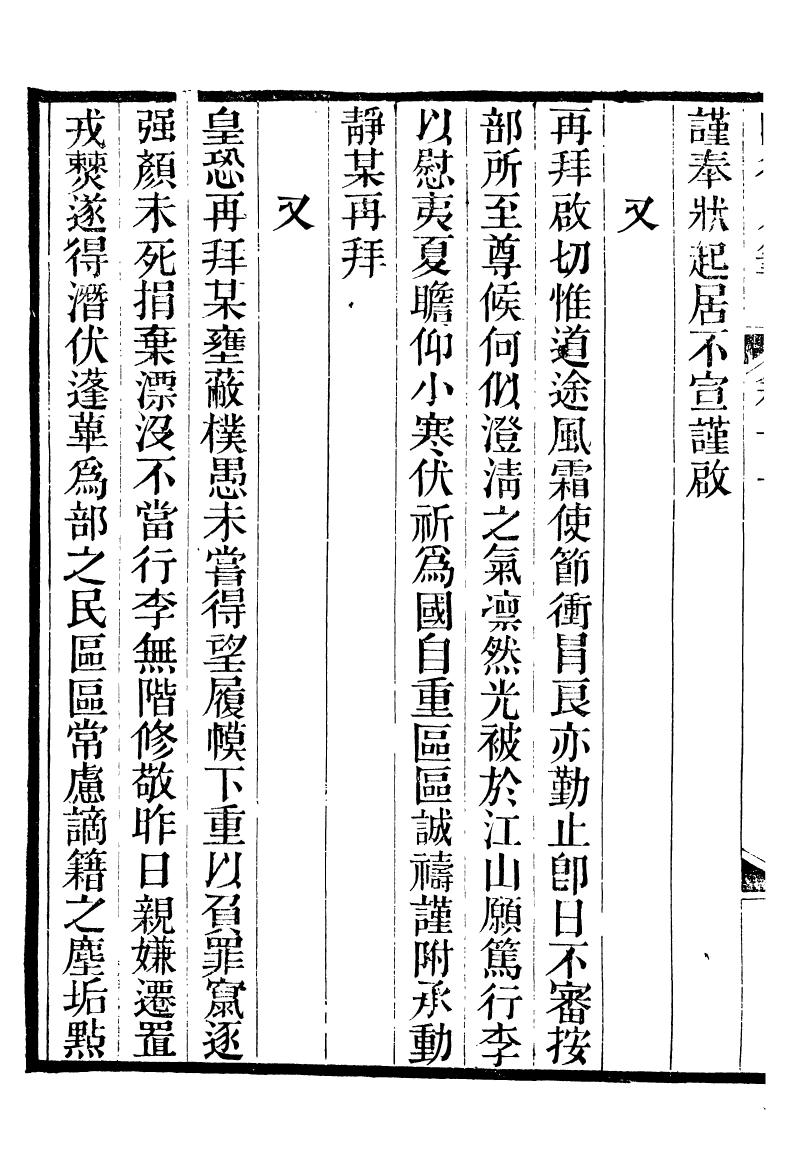 謹奉狀起居不宣謹啟
又
再拜啟切惟道途風霜使節衝冒良亦勤止卽日不審按
部所至尊候何似澄淸之氣凛然光被於江山願篤行李
以慰夷夏瞻仰小寒伏祈爲國自重區區誠禱謹附承動
靜某再拜
又
皇恐再拜某壅蔽樸愚未嘗得望履幙下重以負罪竄逐
强顏未死捐棄漂沒不當行李無階修敬昨日親嫌遷置
戎僰遂得潛伏蓬蓽爲部之民區區常慮謫籍之塵垢點